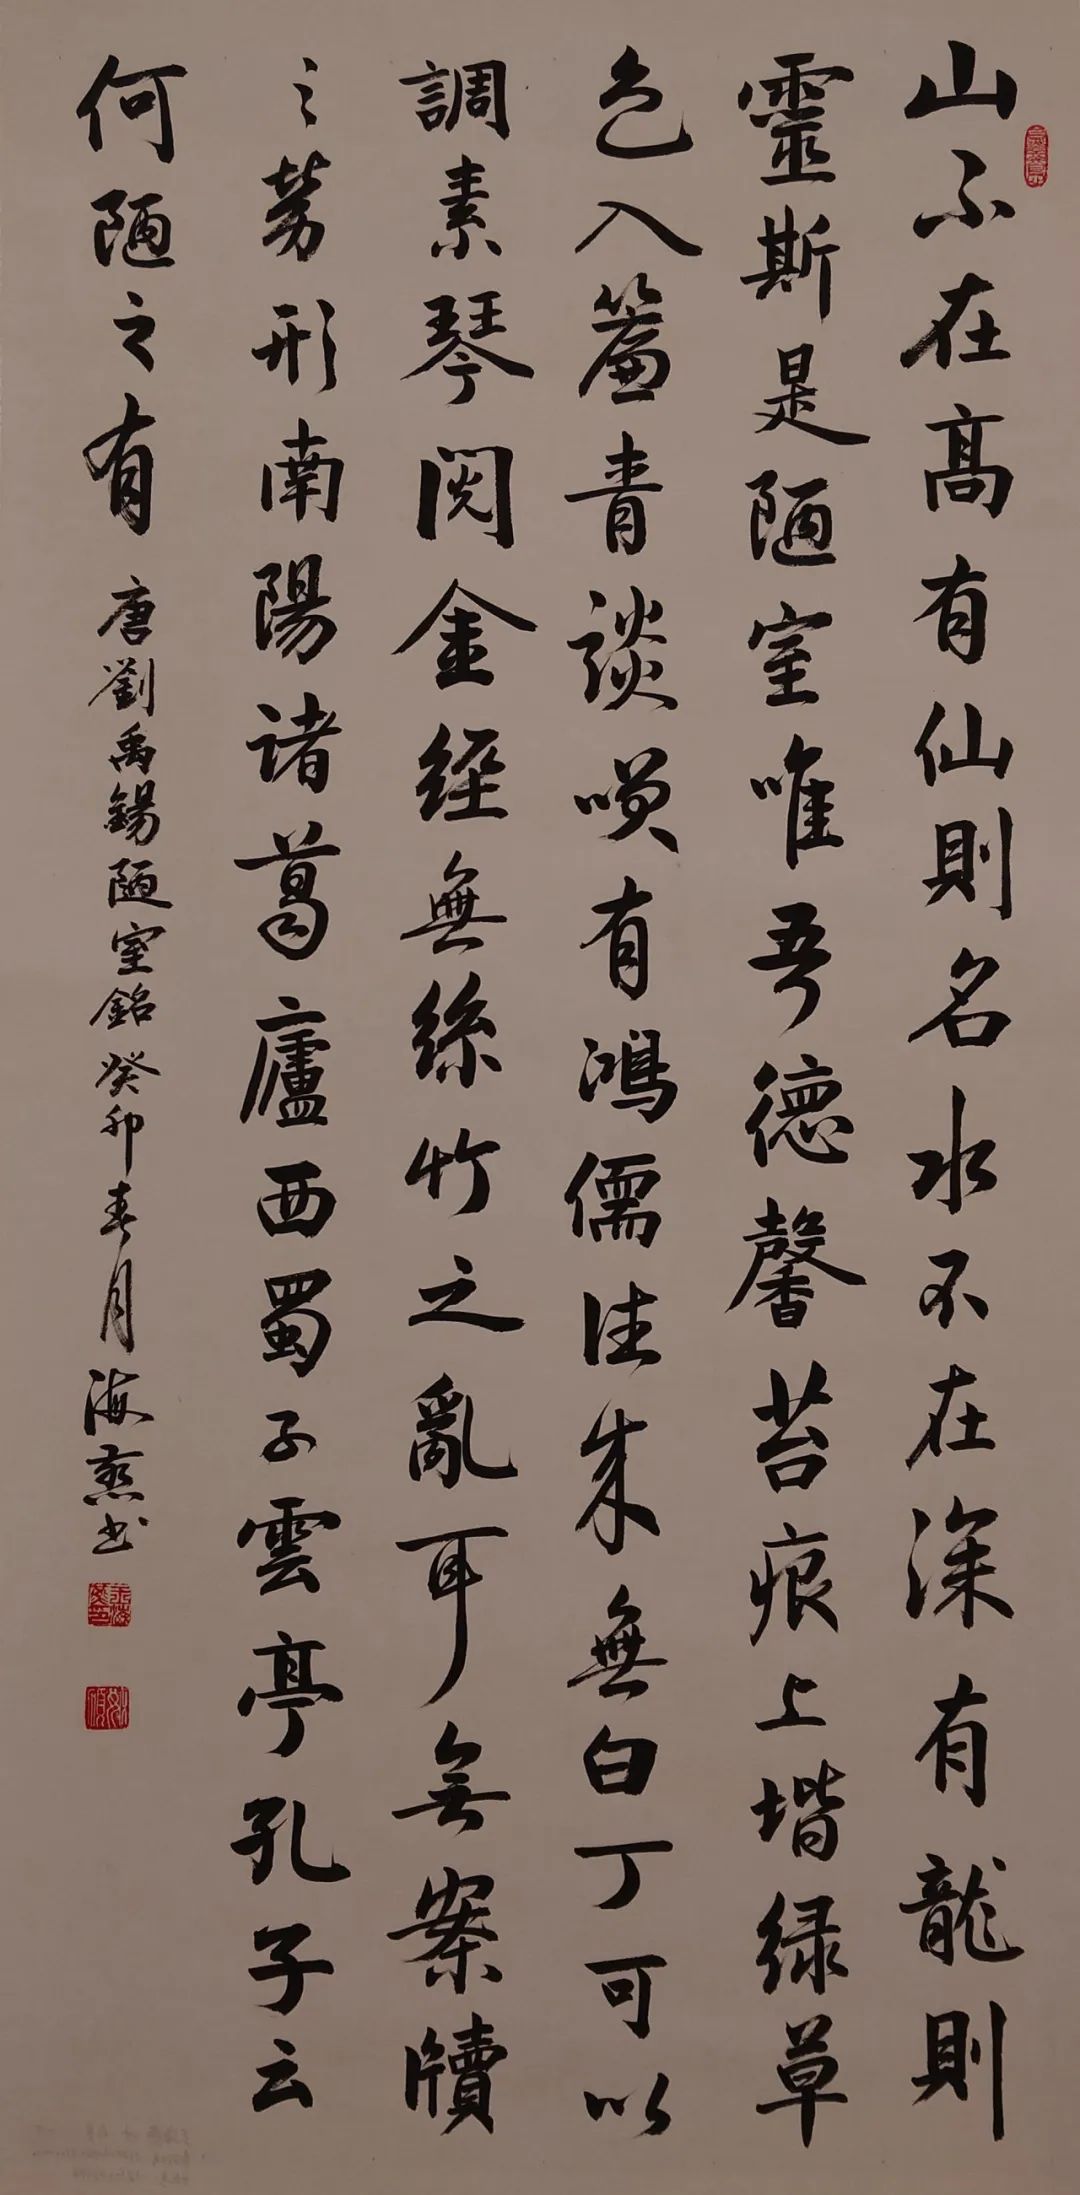 山不在高有仙則名水不在深有龍則
靈斯是陋室唯吾德馨苔痕上堦緑草
色入簾青談咲有鴻儒往来無白丁可以
調素琴閲金經無絲竹之亂耳無案牘
之勞形南陽諸葛廬西蜀子雲亭孔子云
何陋之有 唐劉禹錫陋室銘癸卯春月海燕书